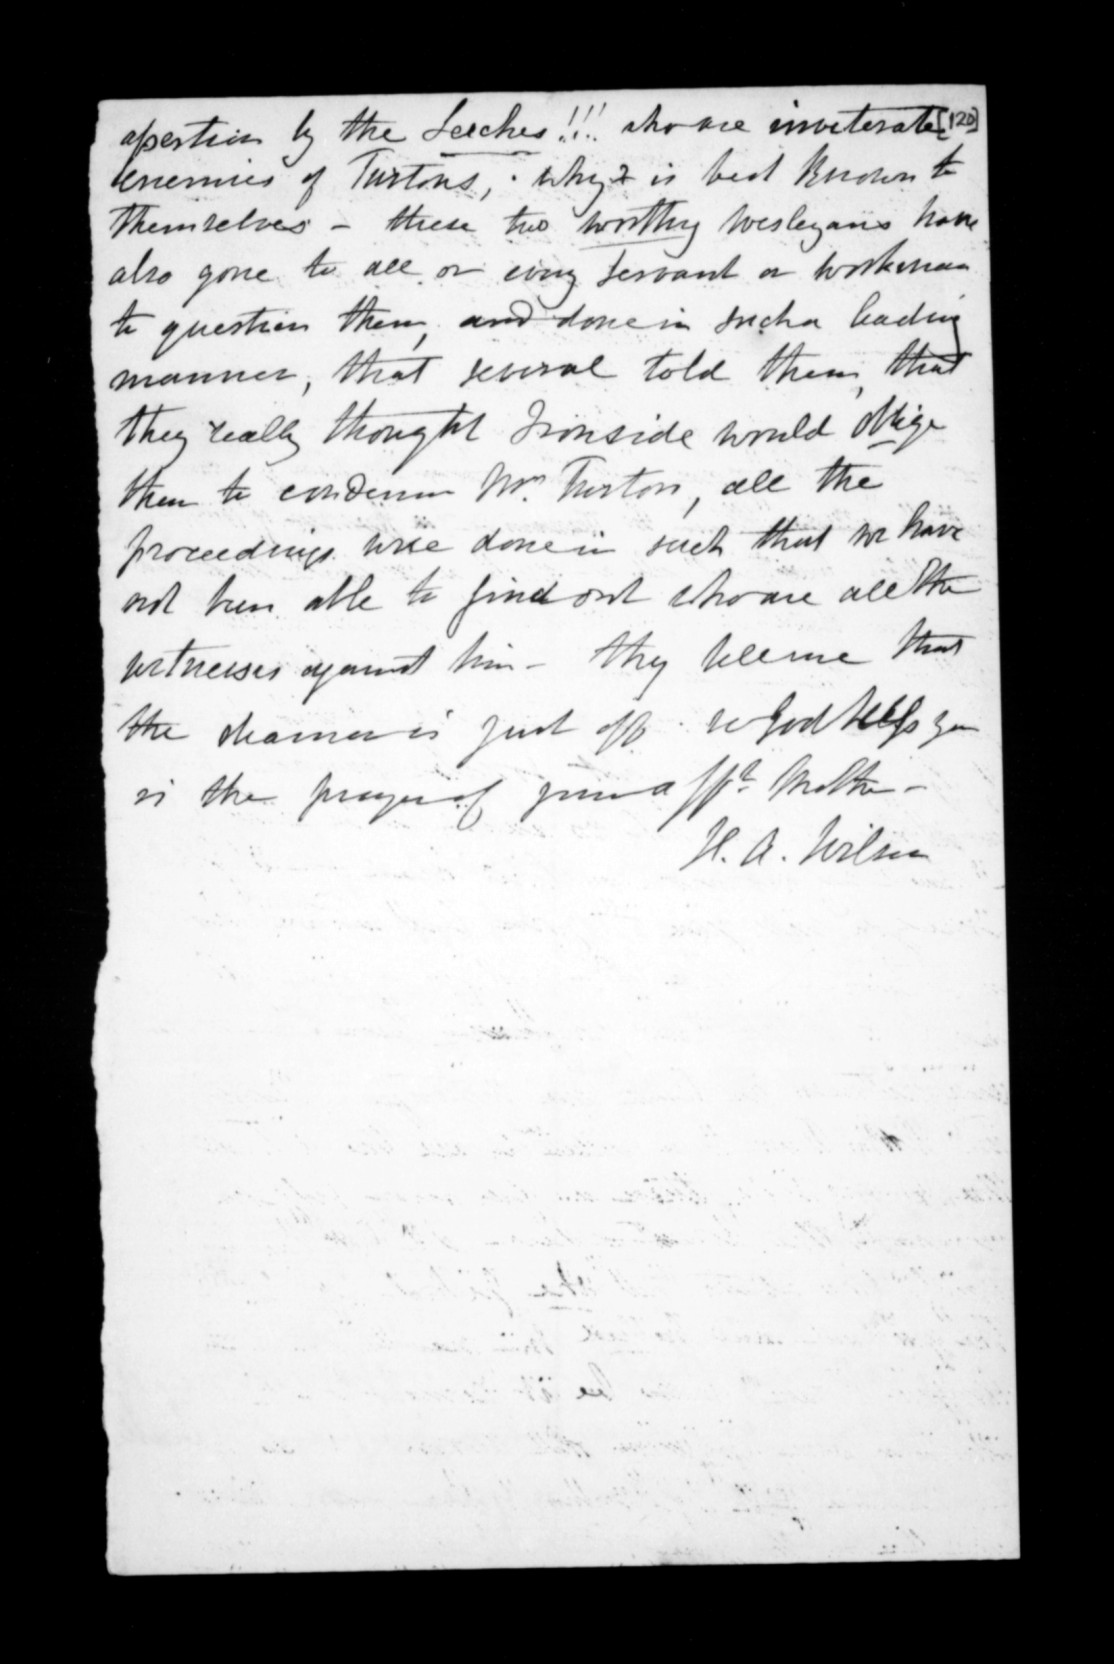 assertion by the Leeches!!! who are inveterate [120]
enemies of Turtons, why? is best known to
themselves - these two worthy Wesleyans have
also gone to all or every servant or workman
to question them, and done in such a leading
manner, that several told them, that
they really thought Ironside would oblige
them to condemn Mr. Turton, all the
proceedings were done in such that we have
not been able to find out who are all the
witnesses against him - they tell me that
the steamer is just off. so God help you
is the prayer of your afft. Mother -
H. A. Wilson